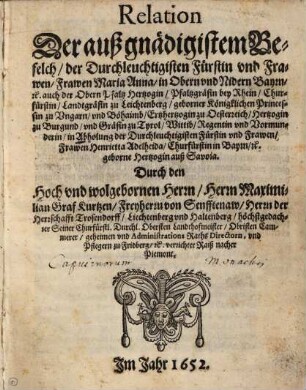 Relation
Der auß gnädigistem Be-
felch / der Durchleuchtigisten Fürstin vnd Fra-
wen / Frawen Maria Anna / in Obern vnd Nidern Bayrn /
ꝛc. auch der Obern Pfaltz Hertzogin / Pfaltzgräfin bey Rhein / Chur-
fürstin / Landtgräfin zu Leichtenberg / geborner Königklichen Princes-
sin zu Vngarn / vnd Böhaimb / Ertzhertzogin zu Oesterreich / Hertzogin
zu Burgund / vnd Gräfin zu Tyrol / Wittib / Regentin vnd Vormun-
derin / in Abholung der Durchleuchtigisten Fürstin vnd Frawen /
Frawen Henrietta Adelheida / Churfürstin in Bayrn / ꝛc.
geborne Hertzogin auß Savoia.
Durch den
Hoch vnd wolgebornen Herrn / Herrn Maximi-
lian Graf Kurtzen / Freyherrn von Senfftenaw / Herrn der
Herrschafft Trosendorff / Liechtenberg vnd Haltenberg / höchstgedach-
ter Seiner Churfürstl. Durchl. Obersten Landthofmeister / Obristen Cam-
merer / geheimen vnd Administrations Raths Directorn / vnd
Pflegern zu Fridberg / ꝛc. verrichter Raiß nacher
Piemont.
Monachij
Im Jahr 1652.